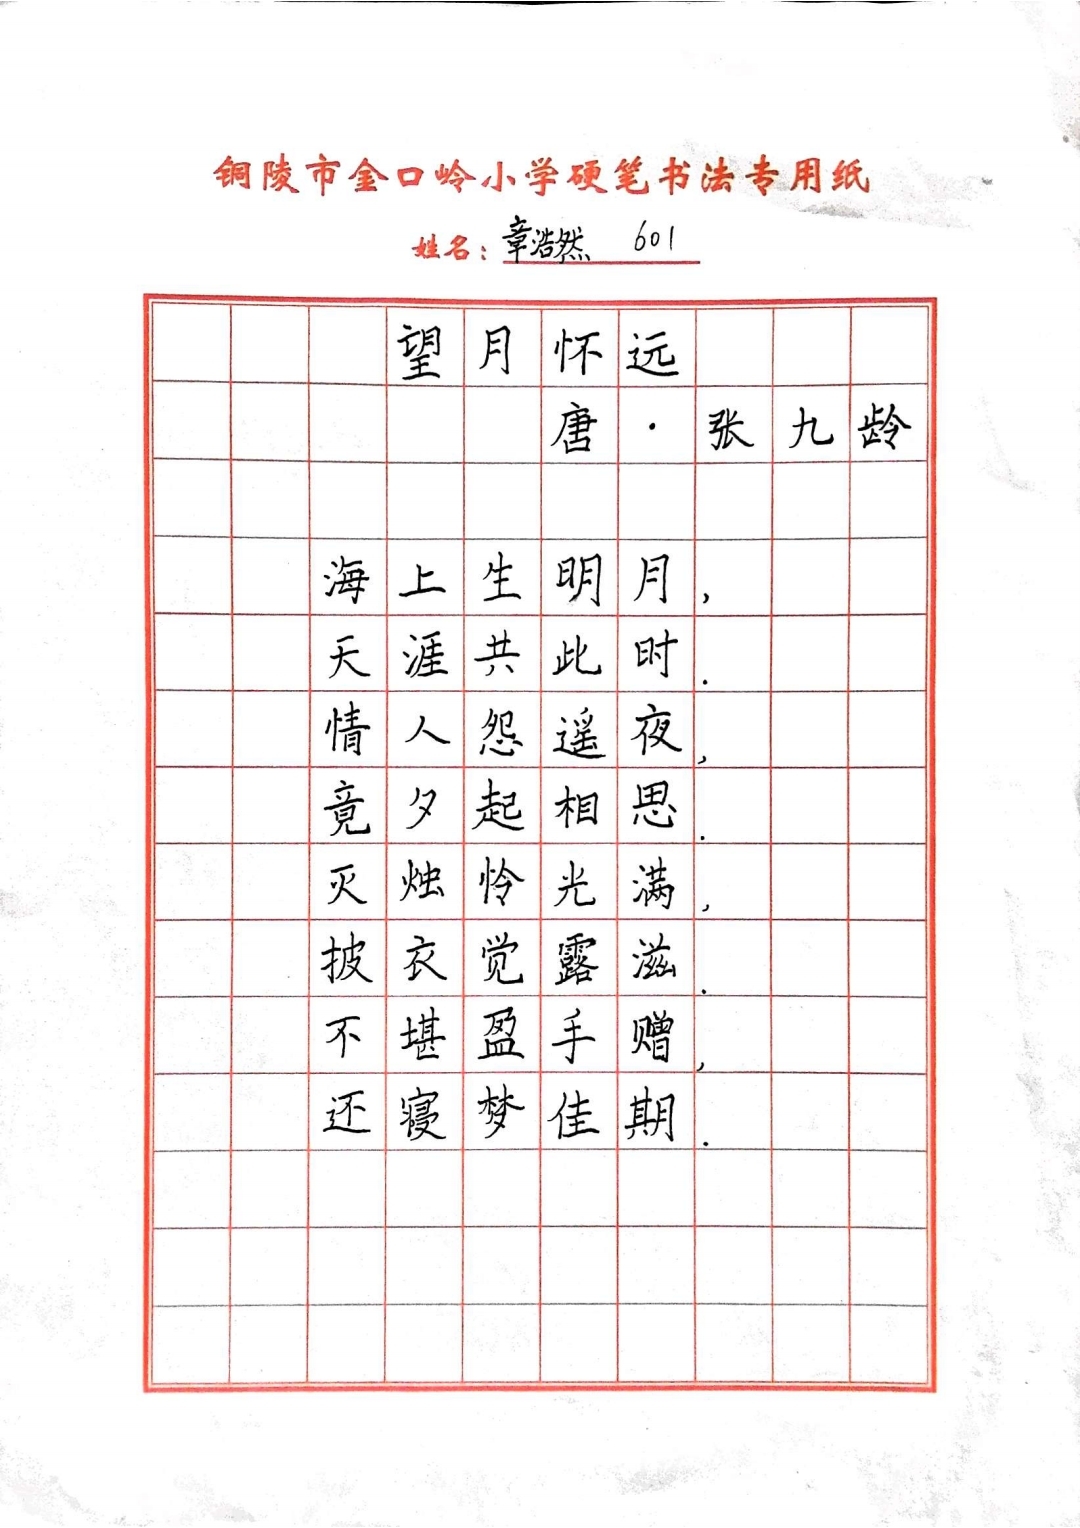 铜陵市金口岭小学硬笔书法专用纸
姓名：章浩然 601
望月怀远
唐·张九龄
海上生明月，
天涯共此时.
情人怨遥夜，
竟夕起相思.
灭烛怜光满，
披衣觉露滋.
不堪盈手赠，
还寝梦佳期.